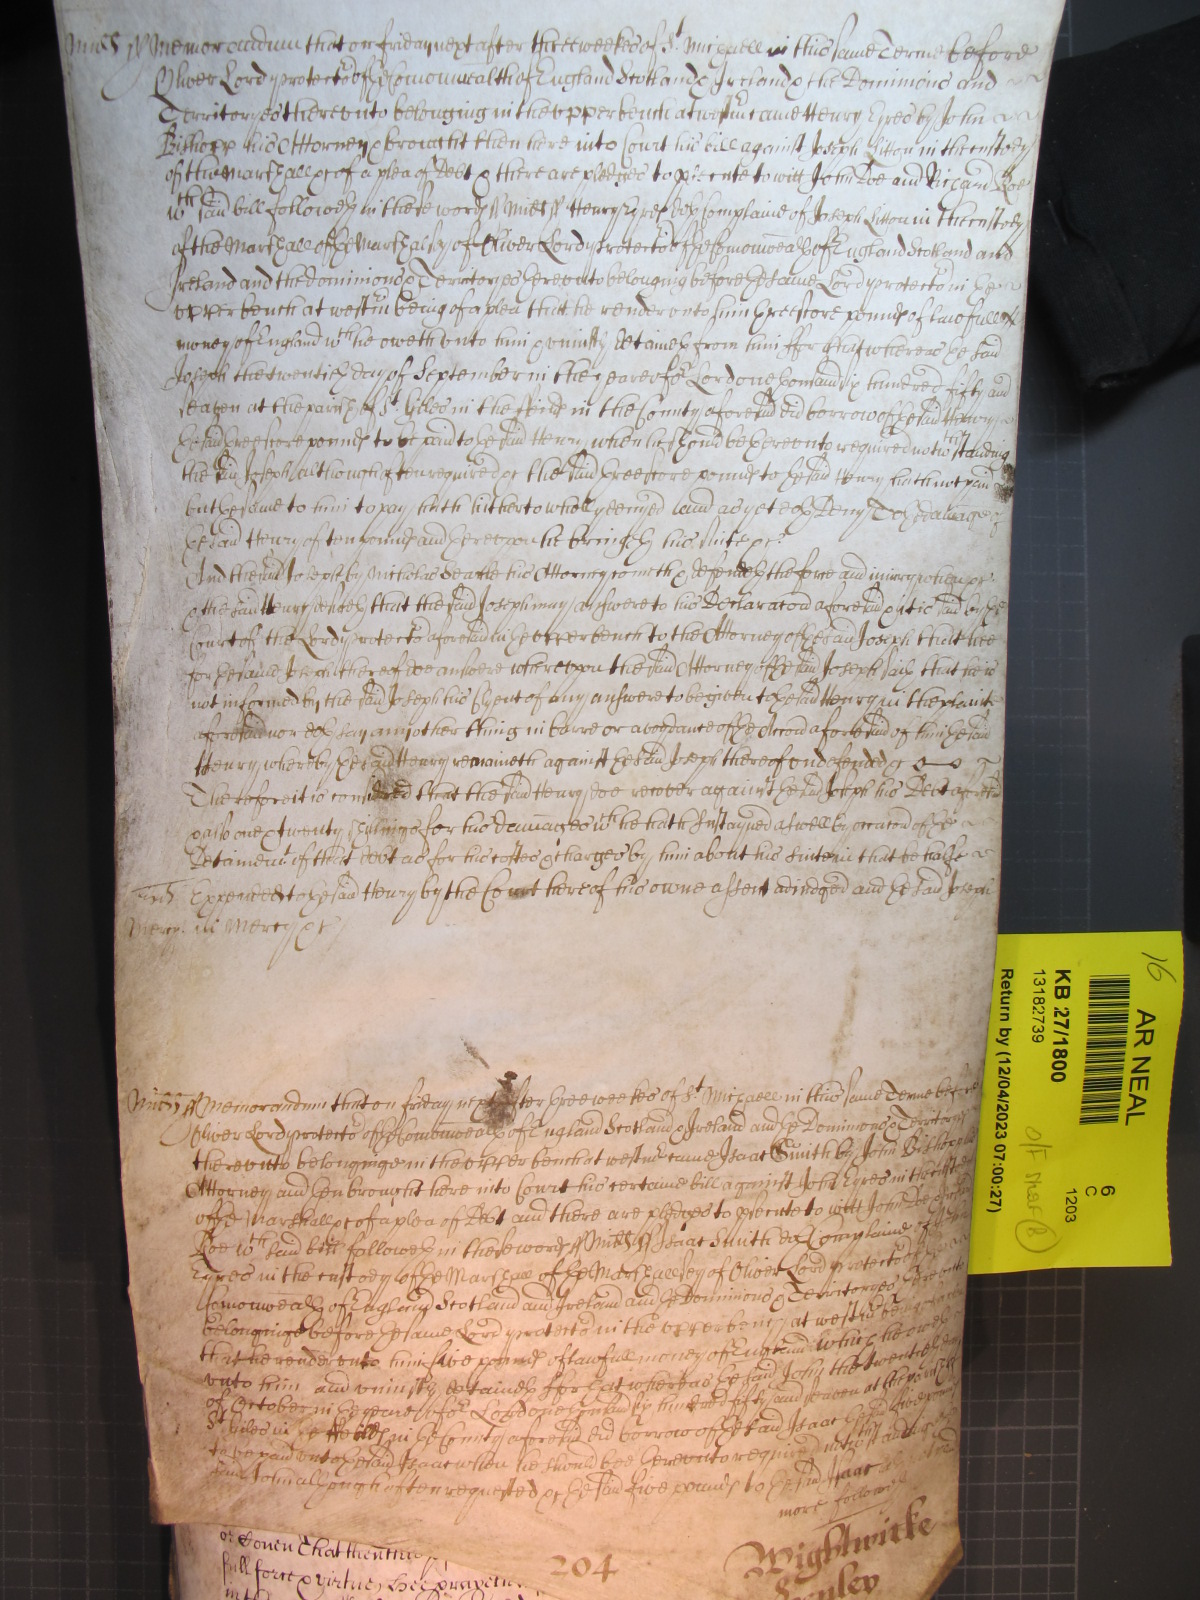 Midds ss Memorandum that on friday next after three weekes of St. Michaell in this same Terme before
Oliver Lord protector of the Comonwealth of England Scotland & Ireland & the Dominions and
Territoryes thereunto belonging in the upper bench at westmr came Henry Eyres by John
Bishopp his Attorney & brought then here into Court his bill against Joseph Litton in the custody
of the Marshall &c of a plea of Debt & there are pledges to psecute to witt John Doe and Richard Roe
wch said bill followeth in these words ss Midd ss Henry Eyres doth Complaine of Joseph Litton in the custody
of the Marshall of the Marshalsey of Oliver Lord protector of the Comonwealth of England Scotland and
Ireland and the dominions & Territoryes thereunto belonging before the same Lord protector in the
upper bench at westm being of a plea that he render unto him threescore pounds of lawfull
money of England wch he oweth unto him & uniustly detaineth from him ffor that whereas the said
Joseph the twentieth day of September in the yeare of or Lord one thousand six hundred fifty and
seaven at the parish of St. Giles in the feilds in the County aforesaid did borrow of the said Henry
the said threescore pounds to be paid to the said Henry when he should be thereunto required notwthstanding
the said Joseph although often required &c the said threescore pounds to the said Henry hath not paid
but the same to him to pay hath hitherto wholly denyed and as yet doth Deny To the damage of
the said Henry of ten pounds and thereupon he bringeth his suite &c.
And the said Joseph by Nicholas Searle his Attorney cometh & defendeth the force and iniury when &c
& the said Henry that the said Joseph may answere to his Declaracon aforesaid & it is said by the
Court of the Lord protector aforesaid in the upper bench to the Attorney of the said Joseph that hee
for the said Joseph thereof doe answere whereupon the said Attorney of the said Joseph saith that he is
not informed by the said Joseph his Clyent of any answere to be given to the said Henry in the plainte
aforesaid nor doth say any other thing in barre or avoydance of the accon aforesaid of him the said
Henry whereby the said Henry remaineth against the said Joseph thereof undefended &c
Therefore it is considered that the said Henry doe recover against the said Joseph his Debt aforesaid
& also one & twenty shillings for his damages wch he hath sustayned aswell by occacon of the
Detaineing of that debt as for his costes & charges by him about his suite in that behalfe
Expended to the said Henry by the Court here of his owne assent adiudged and the said Joseph
Mercy in Mercy &c
Midds ss Memorandum that on friday next after three weekes of St Michaell in this same Terme before
Oliver Lord protector of the Comonwealth of England Scotland & Ireland and the Dominions & Territoryes
thereunto belonginge in the upper bench at westmr came Isaac Smith by John Bishopp his
Attorney and then brought here into Court his certaine bill against John Eyres in the custody
of the Marshall &c of a plea of Debt and there are pledges to psecute to witt John Doe & Richard
Roe wch said bill followeth in these words ss Midds ss Isaac Smith doth Complaine of John
Eyres in the custody of the Marshall of the Marshallsey of Oliver Lord protector of the
Comonwealth of England Scotland and Ireland and the Dominions & Territoryes thereunto
belonginge before the same Lord protector in the upper bench at westm being of a plea
that he render unto him five pounds of lawfull money of England which he oweth
unto him and uniustly detaineth ffor that whereas the said John the twentieth day
of October in the yeare of or Lord one thousand six hundred fifty and seaven at the parish of
St Giles in the feilds in the County aforesaid did borrow of the said Isaac the said five pounds
to be paid unto the said Isaac when he should bee thereunto required notwthstanding the
said John although often requested &c the said five pounds to the said Isaac
more followeth
204
Wightwicke
full force & virtue, hee
AR NEAL
16
KB 27/1800
13182739
Return by (12/04/2023 07:00:27)
6
C
1203